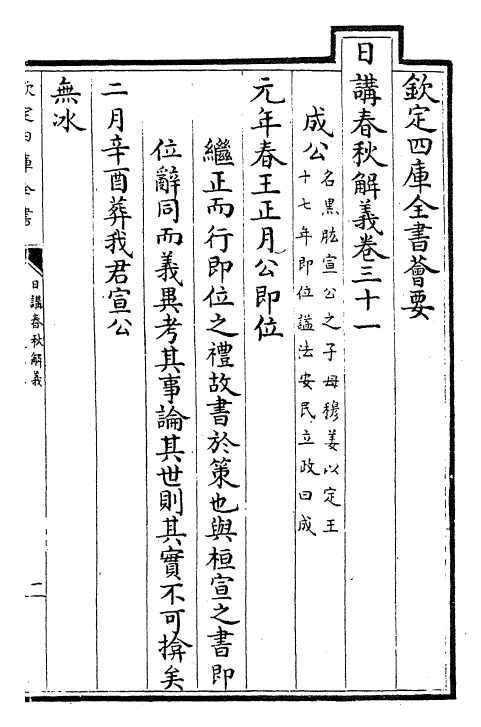 欽定四庫全書薈要
日講春秋解義卷三十一
成公名黑肱宣公之子母穆姜以定王
十七年即位諡法安民立政曰成
元年春王正月公即位
繼正而行即位之禮故書於策也與桓宣之書即
位辭同而義異考其事論其世則其實不可揜矣
二月辛酉葬我君宣公
無冰
欽定四庫全書
日講春秋解義